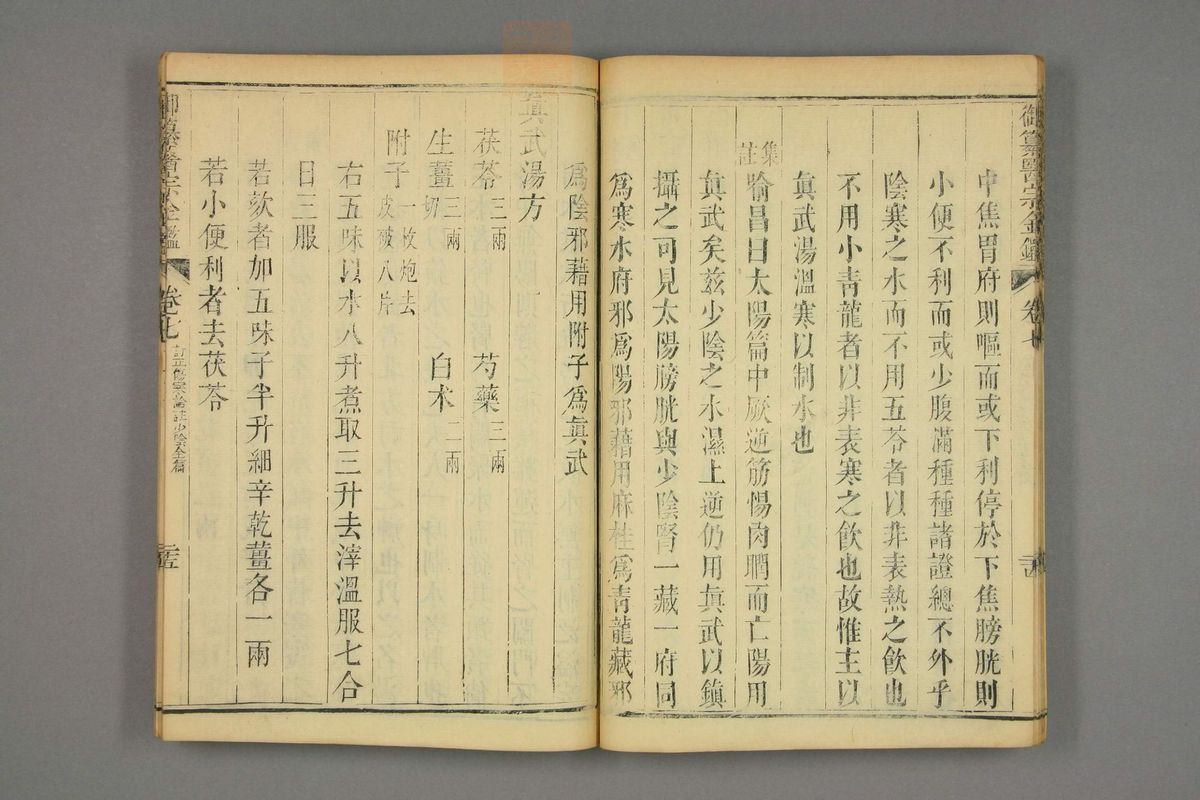 御纂醫宗金鑑
卷七
中焦胃府則嘔而或下利停於下焦膀胱則
小便不利而或少腹滿種種諸證總不外乎
陰寒之水而不用五苓者以非表熱之飲也
不用小青龍者以非表寒之飲也故惟主以
眞武湯溫寒以制水也
集註
喻昌曰太陽篇中厥逆筋惕肉瞤而亡陽用
眞武矣茲少陰之水濕上逆仍用眞武以鎭
攝之可見太陽膀胱與少陰腎一藏一府同
爲寒水府邪爲陽邪藉用麻桂爲靑龍藏邪
爲陰邪藉用附子爲眞武
眞武湯方
茯苓三兩 芍藥三兩
生薑三兩切 白术二兩
附子一枚炮去皮破八片
右五味以水八升煮取三升去滓溫服七合
日三服
若欬者加五味子半升細辛乾薑各一兩
若小便利者去茯苓
御纂醫宗金鑑
卷七
訂正傷寒論註少陰全篇